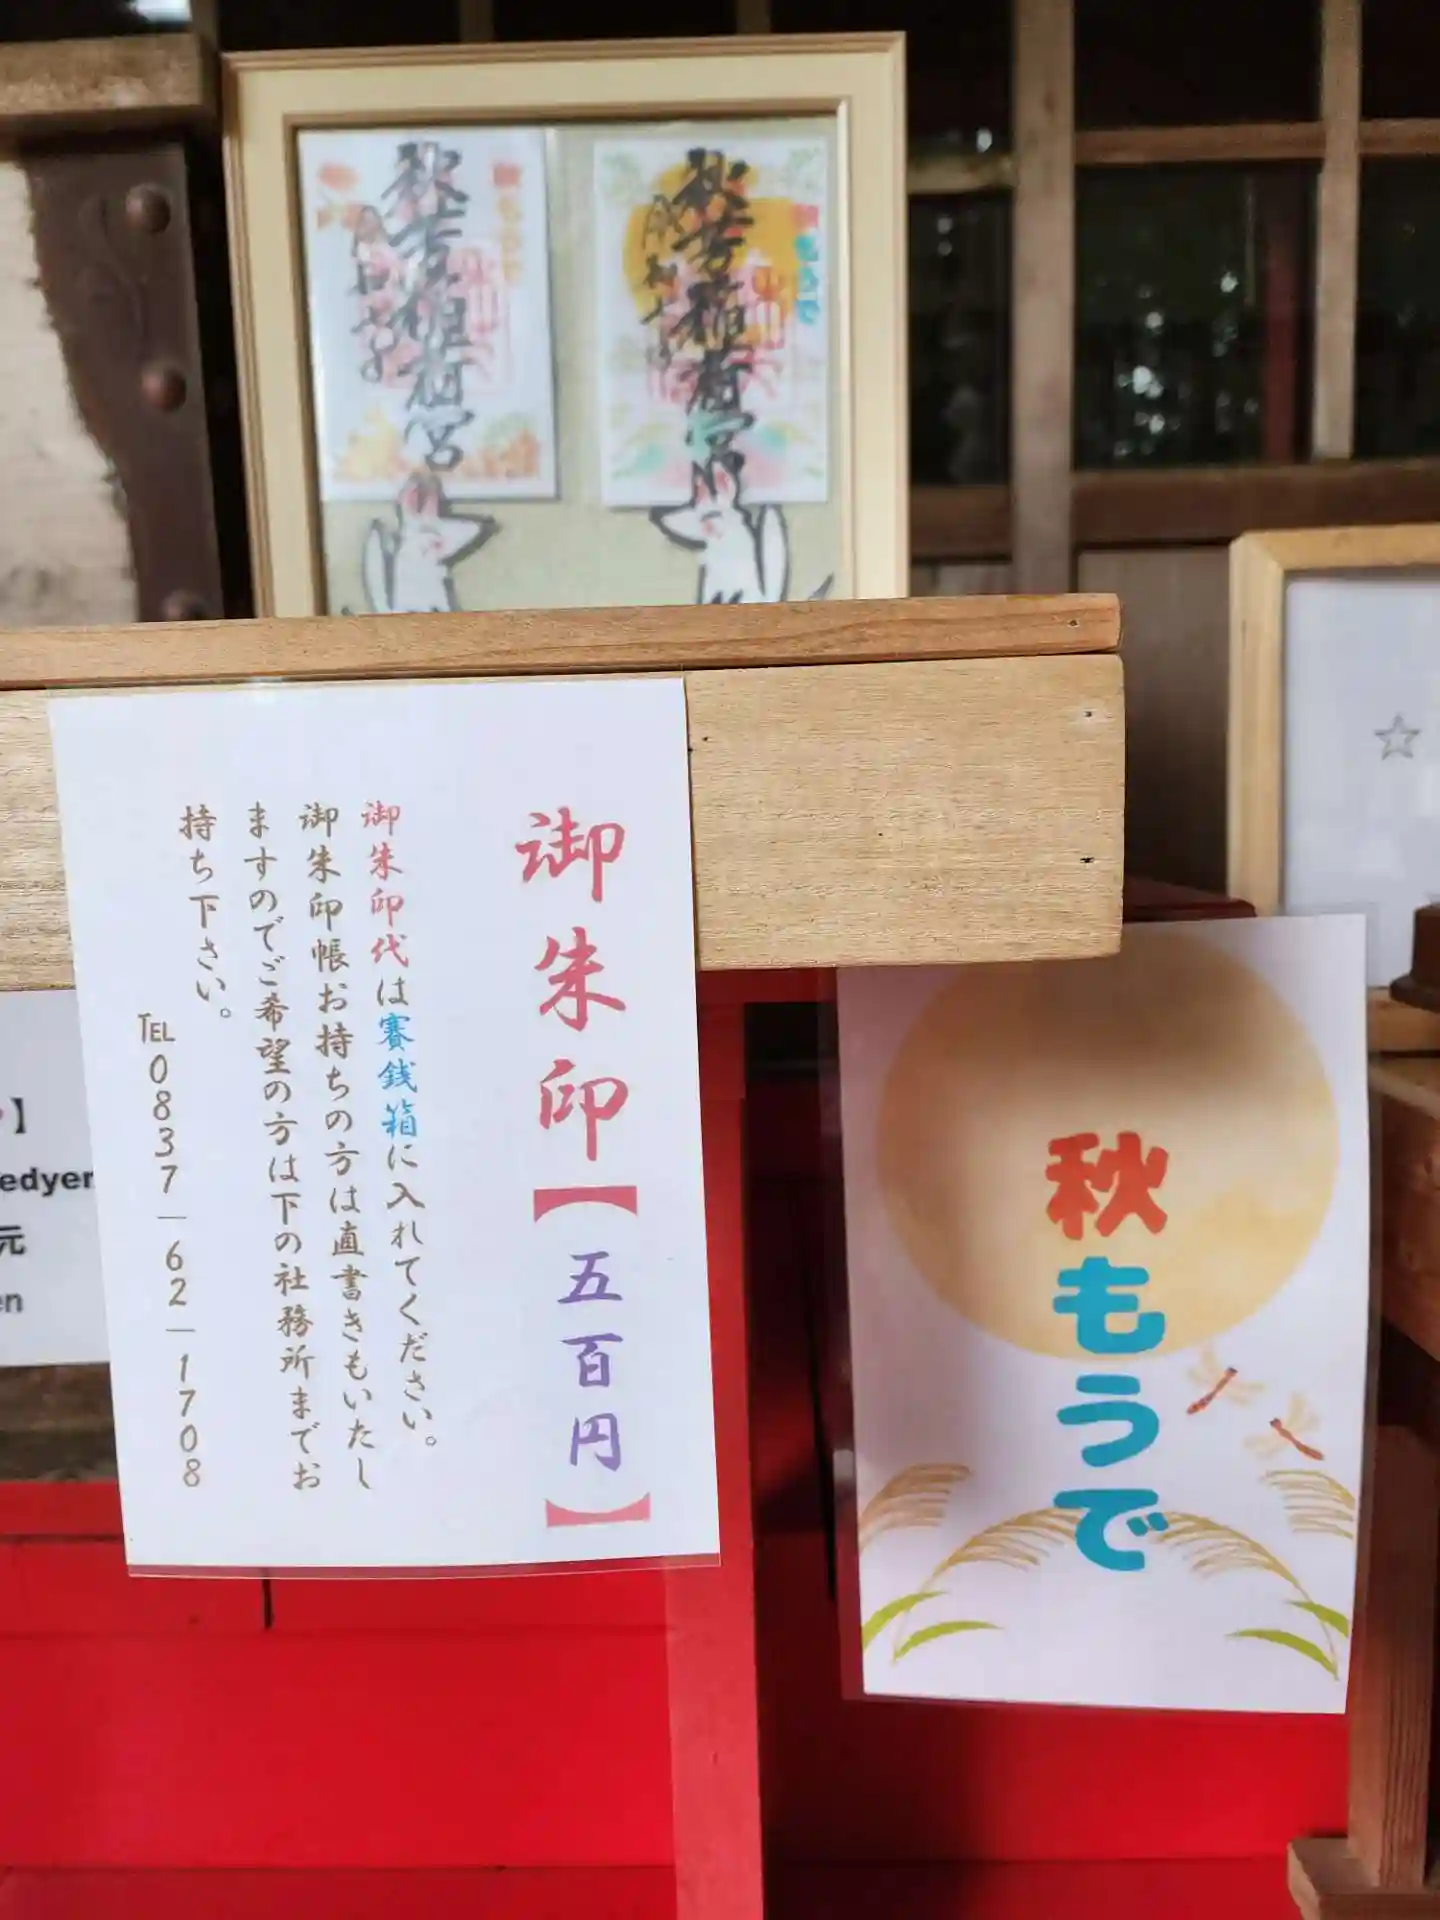 秋芳稲荷宮
秋芳稲荷宮
御朱印【五百円】
御朱印代は賽銭箱に入れてください。
御朱印帳お持ちの方は直書きもいたし
ますのでご希望の方は下の社務所までお
持ち下さい。
TEL 0837-62-1708
秋もうで
☆
】
edyen
元
en